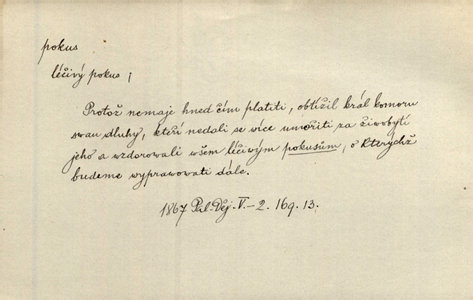 pokus
léčivý pokus;
Protož nemaje hned čím platiti, obtížil král komoru
swau dluhy, kteří nedali se více umořiti za živobytí
jeho a wzdorowali wšem léčivým pokusům, o kterýchž
budeme wyprawowati dále.
1867 Pal. Děj. V.-2. 169. 13.